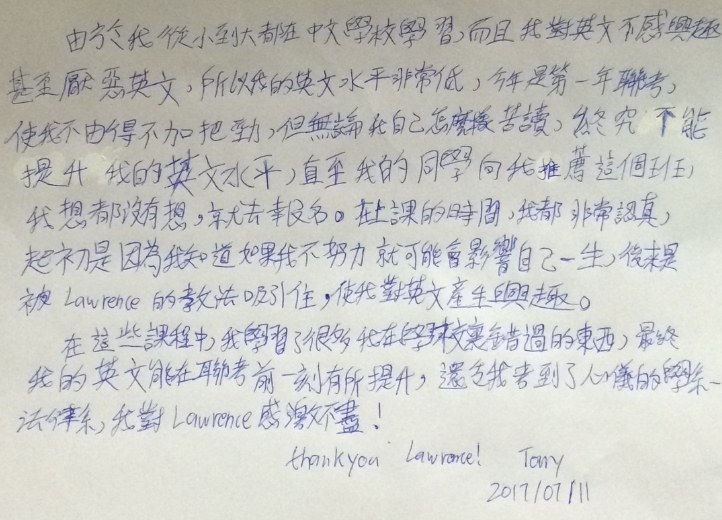 由於我從小到大都在中文學校學習,而且我對英文不感興趣
甚至厭惡英文,所以我的英文水平非常低,今年是第一年聯考,
使我不由得不加把勁,但無論我自己怎麼樣苦讀,終究不能
提升我的英文水平,直至我的同學向我推薦這個班,
我想都沒有想,就去報名。在上課的時間,我都非常認真,
起初是因為我知道如果我不努力就可能會影響自己一生,後來是
被Lawrence的教法吸引住,使我對英文產生興趣。
在這些課程中,我學習了很多我在學校裏錯過的東西,最終
我的英文能在聯考前一刻有所提升,還令我考到了心儀的學系—
法律系,我對Lawrence感激不盡!
thankyou Lawrence! Tony
2017/07/11